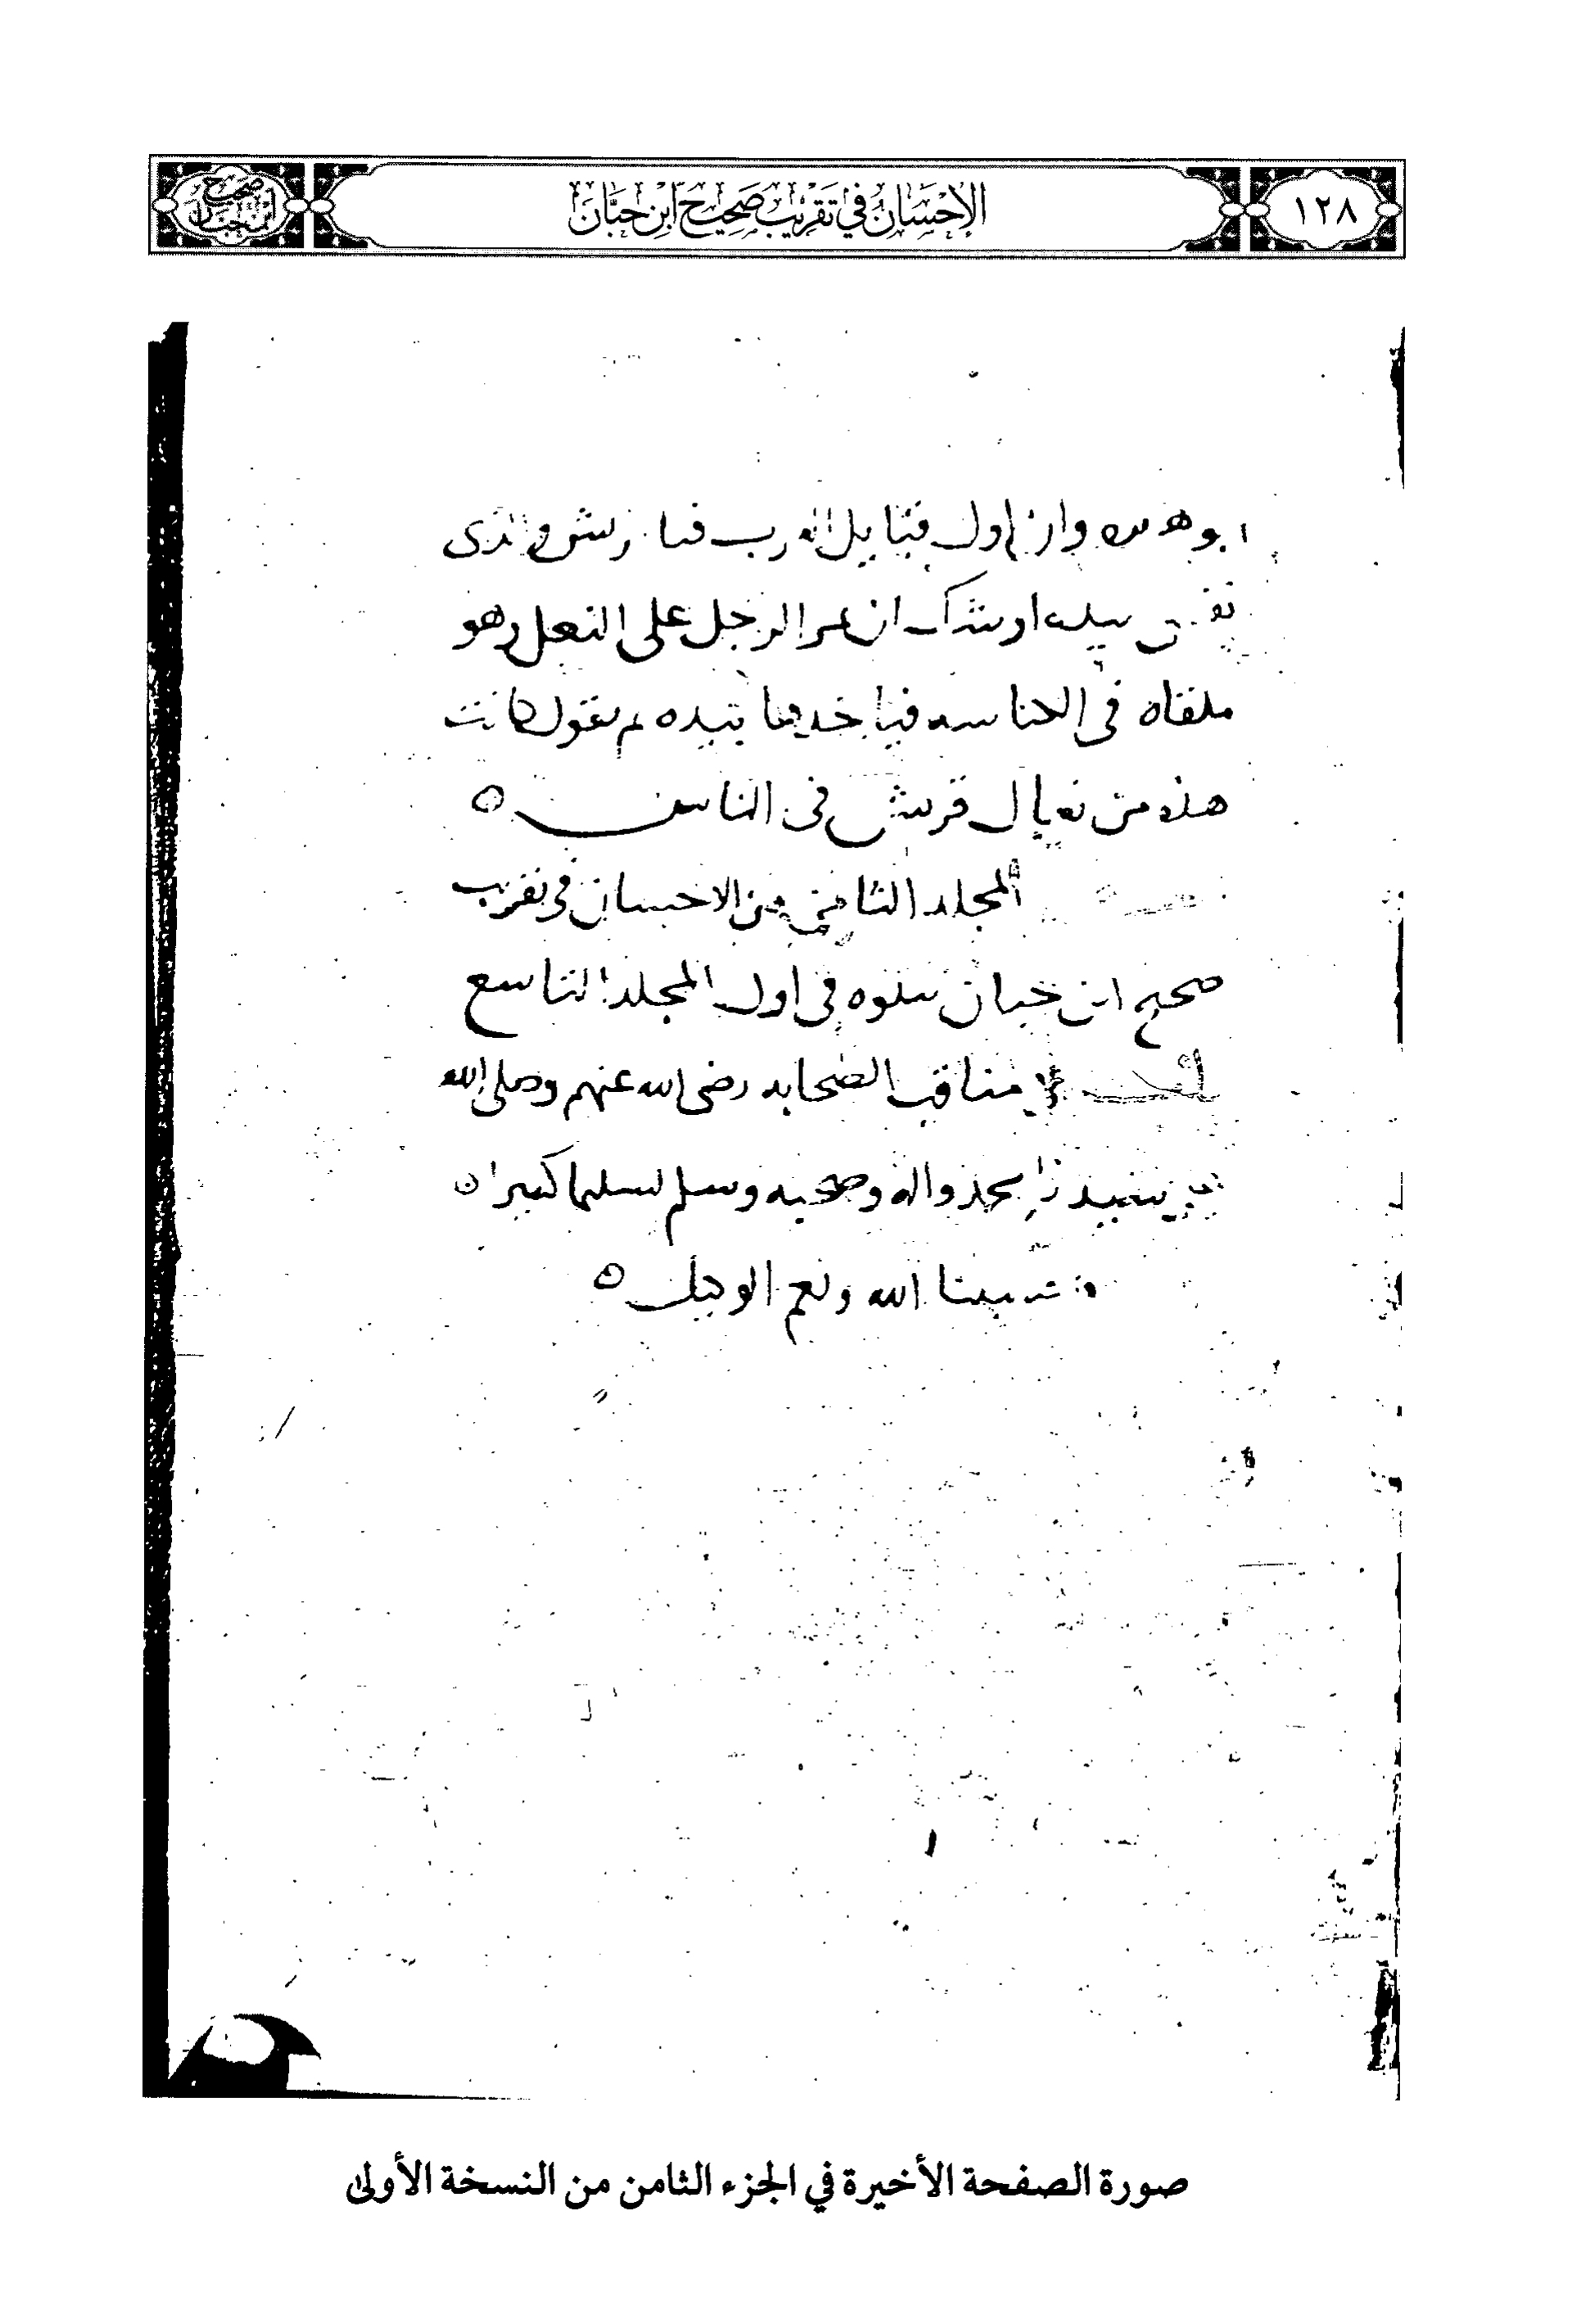 ١٢٨
الإِحْسَانُ فِي تَقْرِيْبِ صَحِيْحِ ابْنِ حِبَّانَ
صحيح ابن حبان
وان اول قبايل رب فنا والذى
اوشك ان يمر الرجل على النعل وهو
ملقاه فى الكناسه فياخدها بيده ثم يقول كانت
هذه من نعال قريش فى الناس ه
المجلد الثامن من الاحسان فى تقريب
صحيح ابن حبان يتلوه فى اول المجلد التاسع
مناقب الصحابه رضى الله عنهم وصلى الله
محمد واله وصحبه وسلم تسليما كثيرا
الله ونعم الوكيل ه
صورة الصفحة الأخيرة في الجزء الثامن من النسخة الأولى